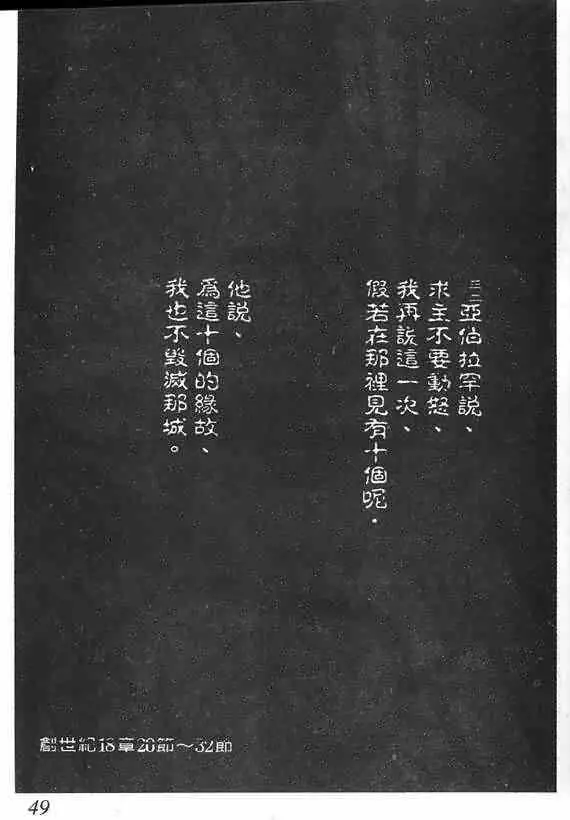 三二亞伯拉罕說、
求主不要動怒、
我再說這一次、
假若在那裡見有十個呢．
他說、
爲這十個的緣故、
我也不毀滅那城。
創世紀18章20節～32節
49